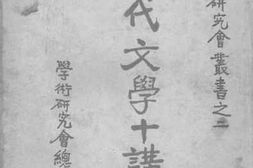 研究會叢書之二
代文學十講
學術研究會總